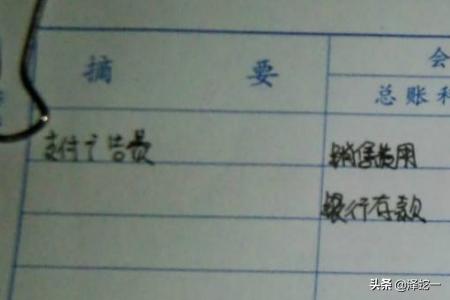 摘 要
会
总账科
支付广告费
销售费用
银行存款
头条 @泽蛇一